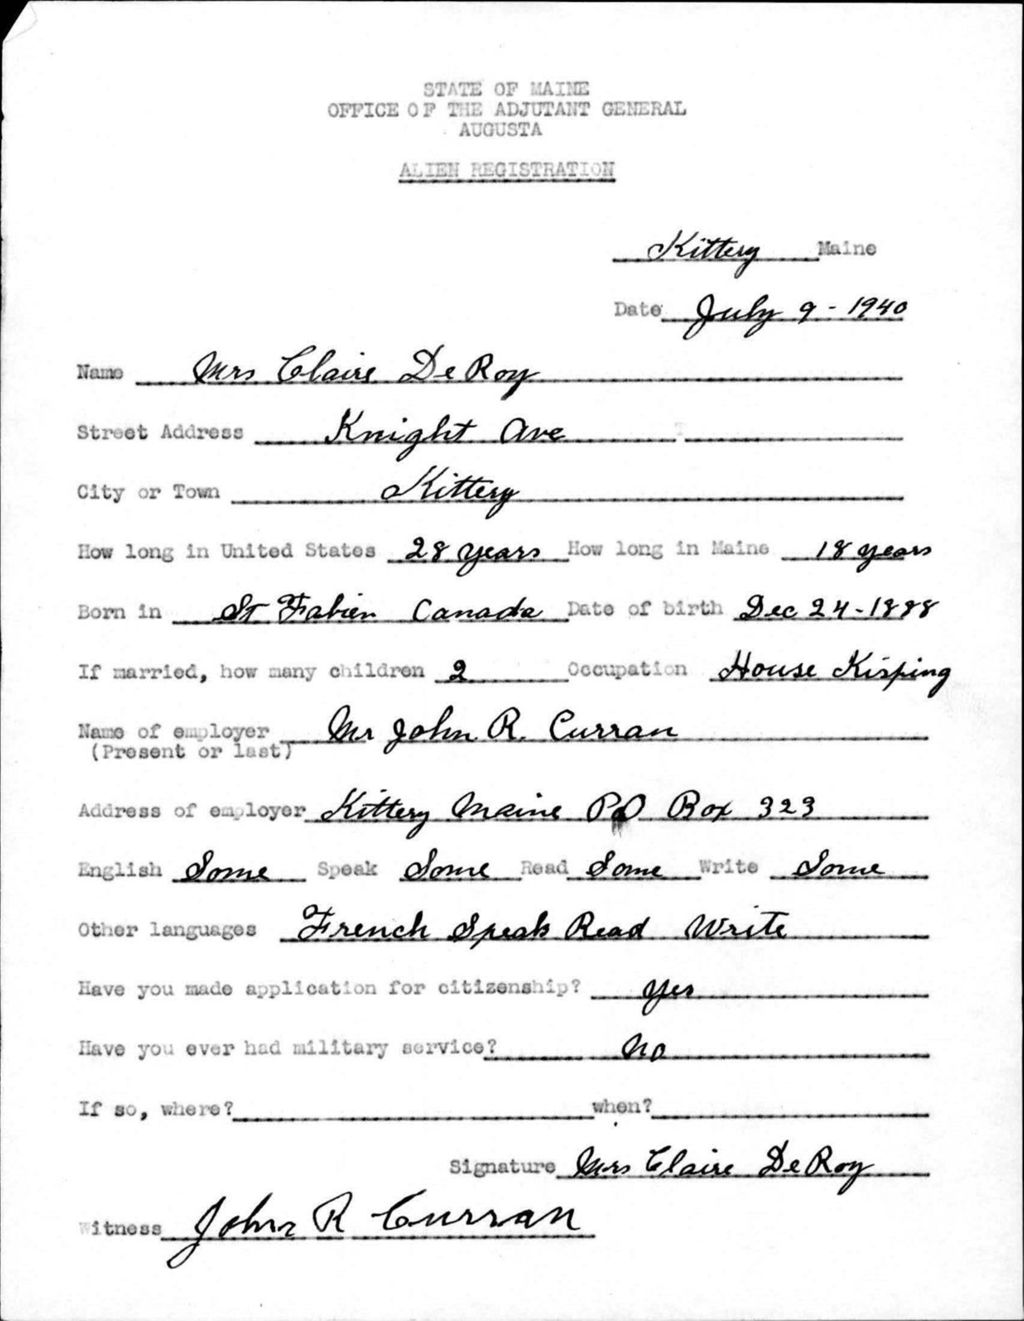 STATE OF MAINE
OFFICE OF THE ADJUTANT GENERAL
AUGUSTA
ALIEN REGISTRATION
Kittery Maine
Date July 9 - 1940
Name Mrs Claire DeRoy
Street Address Knight Ave
City or Town Kittery
How long in United States 28 years How long in Maine 18 years
Born in St Fabien Canada Date of birth Dec 24-1888
If married, how many children 2 Occupation House Kisping
Name of employer Mr John R. Curran
(Present or last)
Address of employer Kittery Maine PO Box 323
English Some Speak Some Read Some Write Some
Other languages French Speak Read Write
Have you made application for citizenship? yes
Have you ever had military service? No
If so, where? when?
Signature Mrs Claire DeRoy
Witness John R Curran